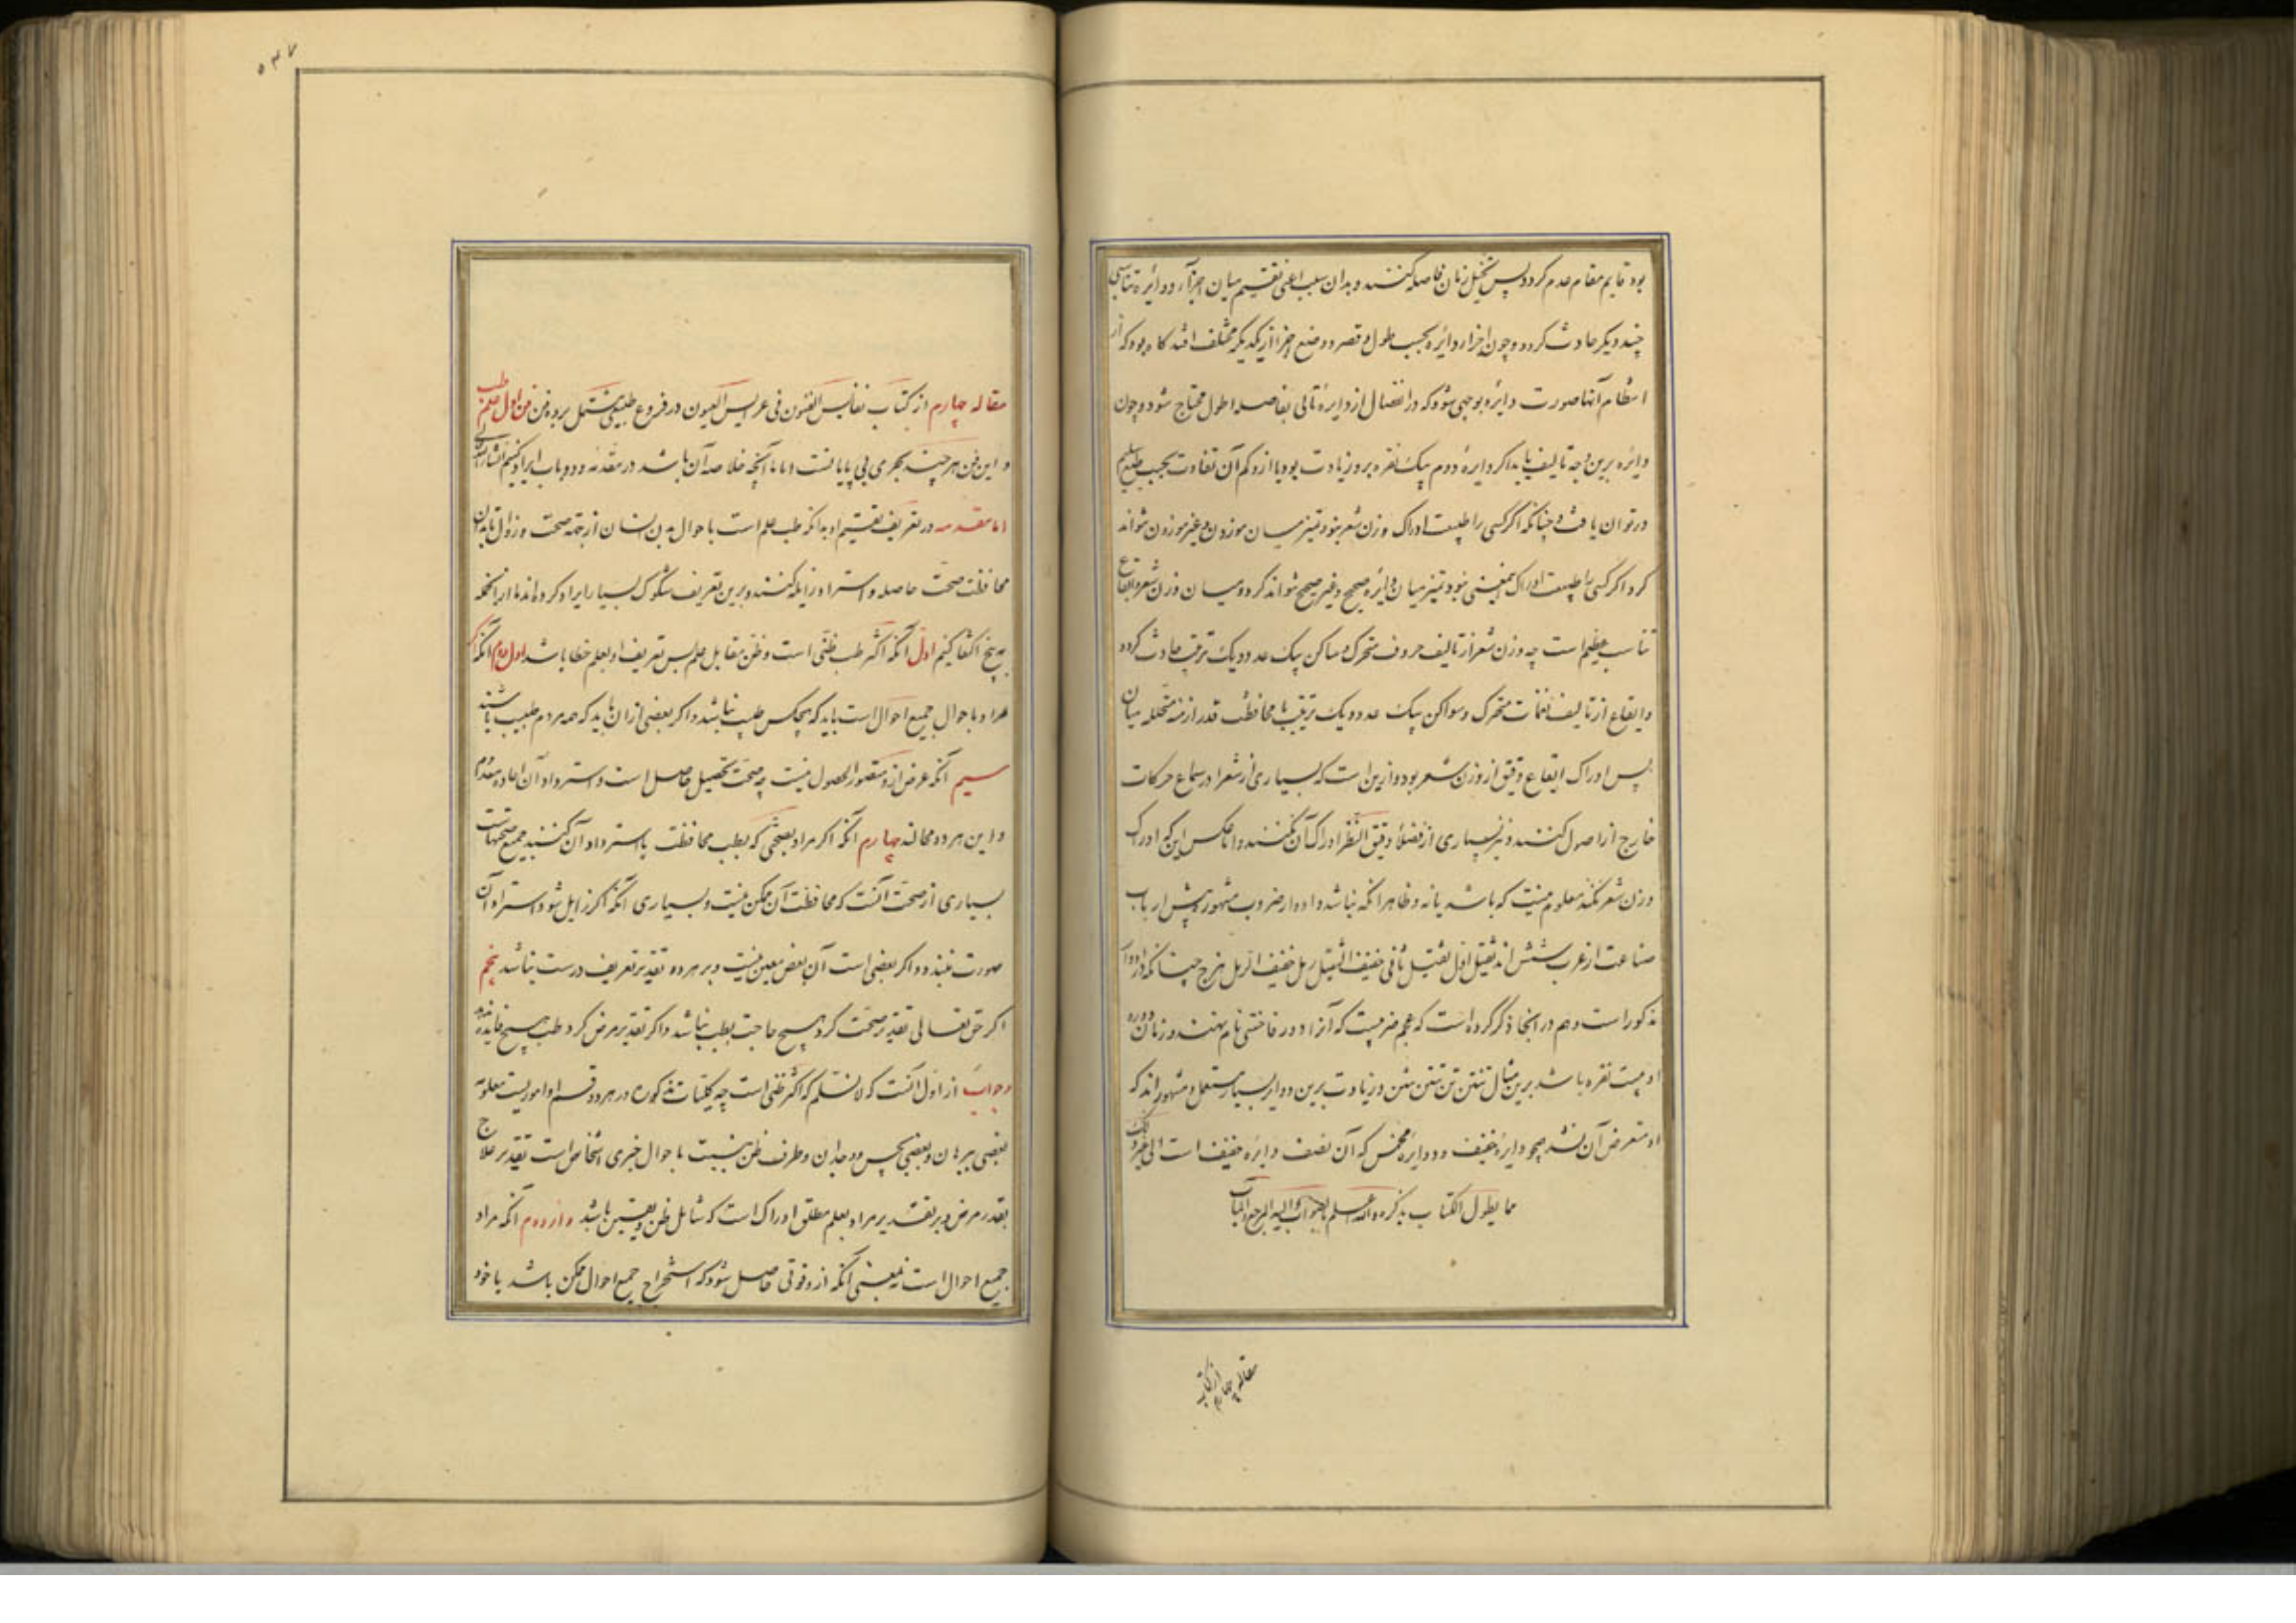 بود قایم مقام عدم کردد پس تخیل زمان فاصله کنند و بدان سبب اعنی تقسیم میان اجزآء دو دایره تناسبی
چند دیکر حادث کردد و چون اجزاء دایره بحسب طول و قصر و وضع اجزا از یکدیکر مختلف افتد کاه بود که از
انتظام آنها صورت دایره بوجهی شود که در انفصال از دایرهٔ ثانی بفاصله اطول محتاج شود و چون
دایره برین وجه تالیف یابد اکر دایرهٔ دوم بیک نقره برو زیادت بود یا ازو کم آن تفاوت بحسب طبع سلیم
در توان یافت و چنانکه اکر کسی را طبیعت ادراک وزن شعر نبود تمیز میان موزون و غیر موزون نتواند
کرد اکر کسی را طبیعت ادراک این معنی نبود تمیز میان دایره صحیح و غیر صحیح نتواند کرد و میان وزن شعر و ایقاع
تناسب عظیم است چه وزن شعر از تالیف حروف متحرک و ساکن بیک عدد و یک ترتیب حادث کردد
و ایقاع از تالیف نغمات متحرک و سواکن بیک عدد و یک ترتیب با محافظت قدر ازمنه متخلله میان
پس ادراک ایقاع دقیق از وزن شعر بود و ازین است که بسیاری از شعرا در سماع حرکات
خارج از اصول کنند و نیز بسیاری از فضلاء دقیق النظر ادراک آن نکنند و اما عکس این که ادراک
وزن شعر نکند معلوم نیست که باشد یا نه و ظاهر انکه نباشد و ادوار ضروب مشهور پیش ارباب
صناعت از عرب شش اند ثقیل اول ثقیل ثانی خفیف الثقیل رمل خفیف الرمل هزج چنانکه در ادوار
مذکور است و هم در انجا ذکر کرده است که عجم را ضربیست که آنرا دور فاختی نام نهند و زمان دوره
او بیست نقره باشد برین مثال تنتن تن تنتن تنن و زیادت برین دوایر بسیار مستعمل و مشهور اند که
او متعرض آن نشد چو دایرهٔ خفیف و دو دایره مخمس که آن نصف دایره خفیف است الی غیر ذلک
مما یطول الکتاب بذکره و الله اعلم بالصواب و الیه المرجع و المآب
مقاله چهارم از کتاب
۵۴۷
مقاله چهارم از کتاب نفایس الفنون فی عرایس العیون در فروع طبیعی مشتمل بر ده فن فن اول علم طب
و این فن هر چند بحری بی پایانست و اما آنچه خلاصه آن باشد در مقدمه و دو باب ایراد کنیم انشاء الله تعالی
اما مقدمه در تعریف و تقسیم او بدانکه طب علم است باحوال بدن انسان از جهة صحت و زوال تا بدان
محافظت صحت حاصله و استرداد زایله کنند و برین تعریف شکوک بسیار ایراد کرده اند ما از انجمله
به پنج اکتفا کنیم اول آنکه اکثر طب ظنی است و ظن مقابل علم پس تعریف او بعلم خطا باشد دوم آنکه اکر
مراد باحوال جمیع احوال است باید که هیچکس طبیب نباشد و اکر بعضی از ان باید که همه مردم طبیب باشند
سیم آنکه غرض ازو متصور الحصول نیست چه صحت تحصیل حاصل است و استرداد آن اعاده معدوم
و این هر دو محالند چهارم آنکه اکر مراد بصحتی که بطب محافظت یا استرداد آن کنند جمیع صحتهاست
بسیاری از صحت آنست که محافظت آن ممکن نیست و بسیاری آنکه اکر زایل شود استرداد آن
صورت نبندد و اکر بعضی است آن بعض معین نیست و بر هر دو تقدیر تعریف درست نباشد پنجم
اکر حق تعالی تقدیر صحت کرد هیچ حاجت بطب نباشد و اکر تقدیر مرض کرد طب هیچ فایده ندهد
و جواب از اول آنست که لا نسلم که اکثر ظنی است چه کلیات مذکوره در هر دو قسم او امور یست معلوم
بعضی ببرهان و بعضی بحس و وجدان و طرف ظن بنسبت باحوال جزی اشخاص است تقدیر علاج
بقدر مرض و بر تقدیر مراد بعلم مطلق ادراک است که شامل ظن و یقین باشد و از دوم آنکه مراد
جمیع احوال است نه بمعنی آنکه ازو قوتی حاصل شود که استخراج جمیع احوال ممکن باشد یا خود